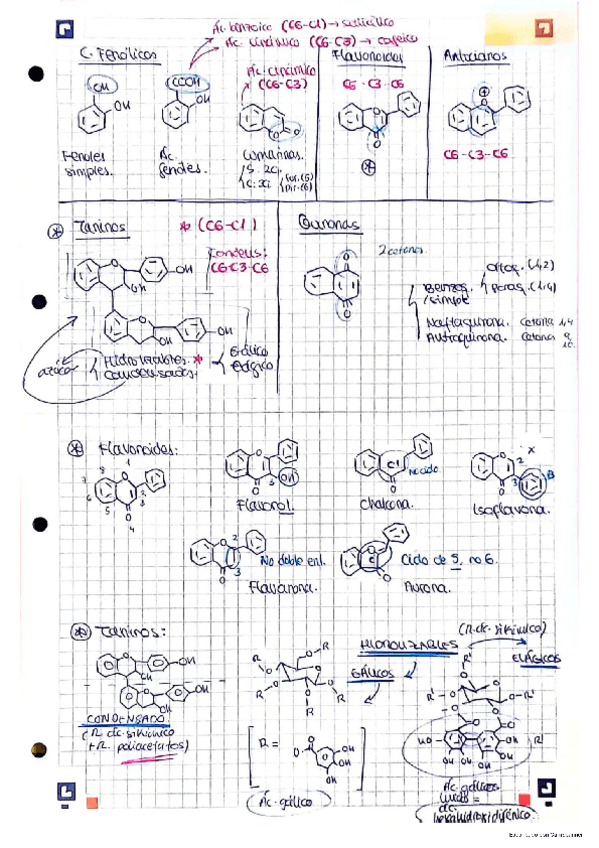 Ác. benzoico (C6-C1) → salicílico
Ác. cinámico (C6-C3) → cafeico
C. Fenólicos
Flavonoides
Antocianos
OH
OH
COOH
OH
Ác. cinámico
(C6-C3)
C6-C3-C6
O
O
O
O
O
C6-C3-C6
Fenoles
simples.
Ác.
fenoles.
Cumarinas.
Taninos
* (C6-C1)
Quinonas
Condens:
C6-C3-C6
O
OH
OH
O
OH
OH
O
O
2 cetonas
Benzoq.
/simple
Ortoq. (1,2)
Paraq. (1,4)
Naftaquinona. Cetona 1,4
Antraquinona. Cetona 9,
10.
azúcar
Hidrolizables. *
Condensados.
Gálico
Elágico
Flavonoides:
8
1
7
6
5
4
3
2
O
O
O
3
OH
O
Flavonol.
C
No ciclo
O
Chalcona.
O
2
X
3
B
O
Isoflavona.
O
2
3
O
No doble enl.
Flavanona.
O
C
O
Ciclo de 5, no 6.
Aurona.
Taninos:
HIDROLIZABLES
(R. ác. sikímico)
GÁLICOS
ELÁGICOS
O
OH
OH
O
OH
OH
CONDENSADO
(R ác. sikímico
+ R. poliacetatos)
R
R
R
R
R
R =
O
OH
OH
OH
Ác. gálico
R'
R'
R'
O
O
O
O
HO
OH
OH
OH
OH
Ác. gálicos
unidos =
ác.
hexahidroxidifénico.